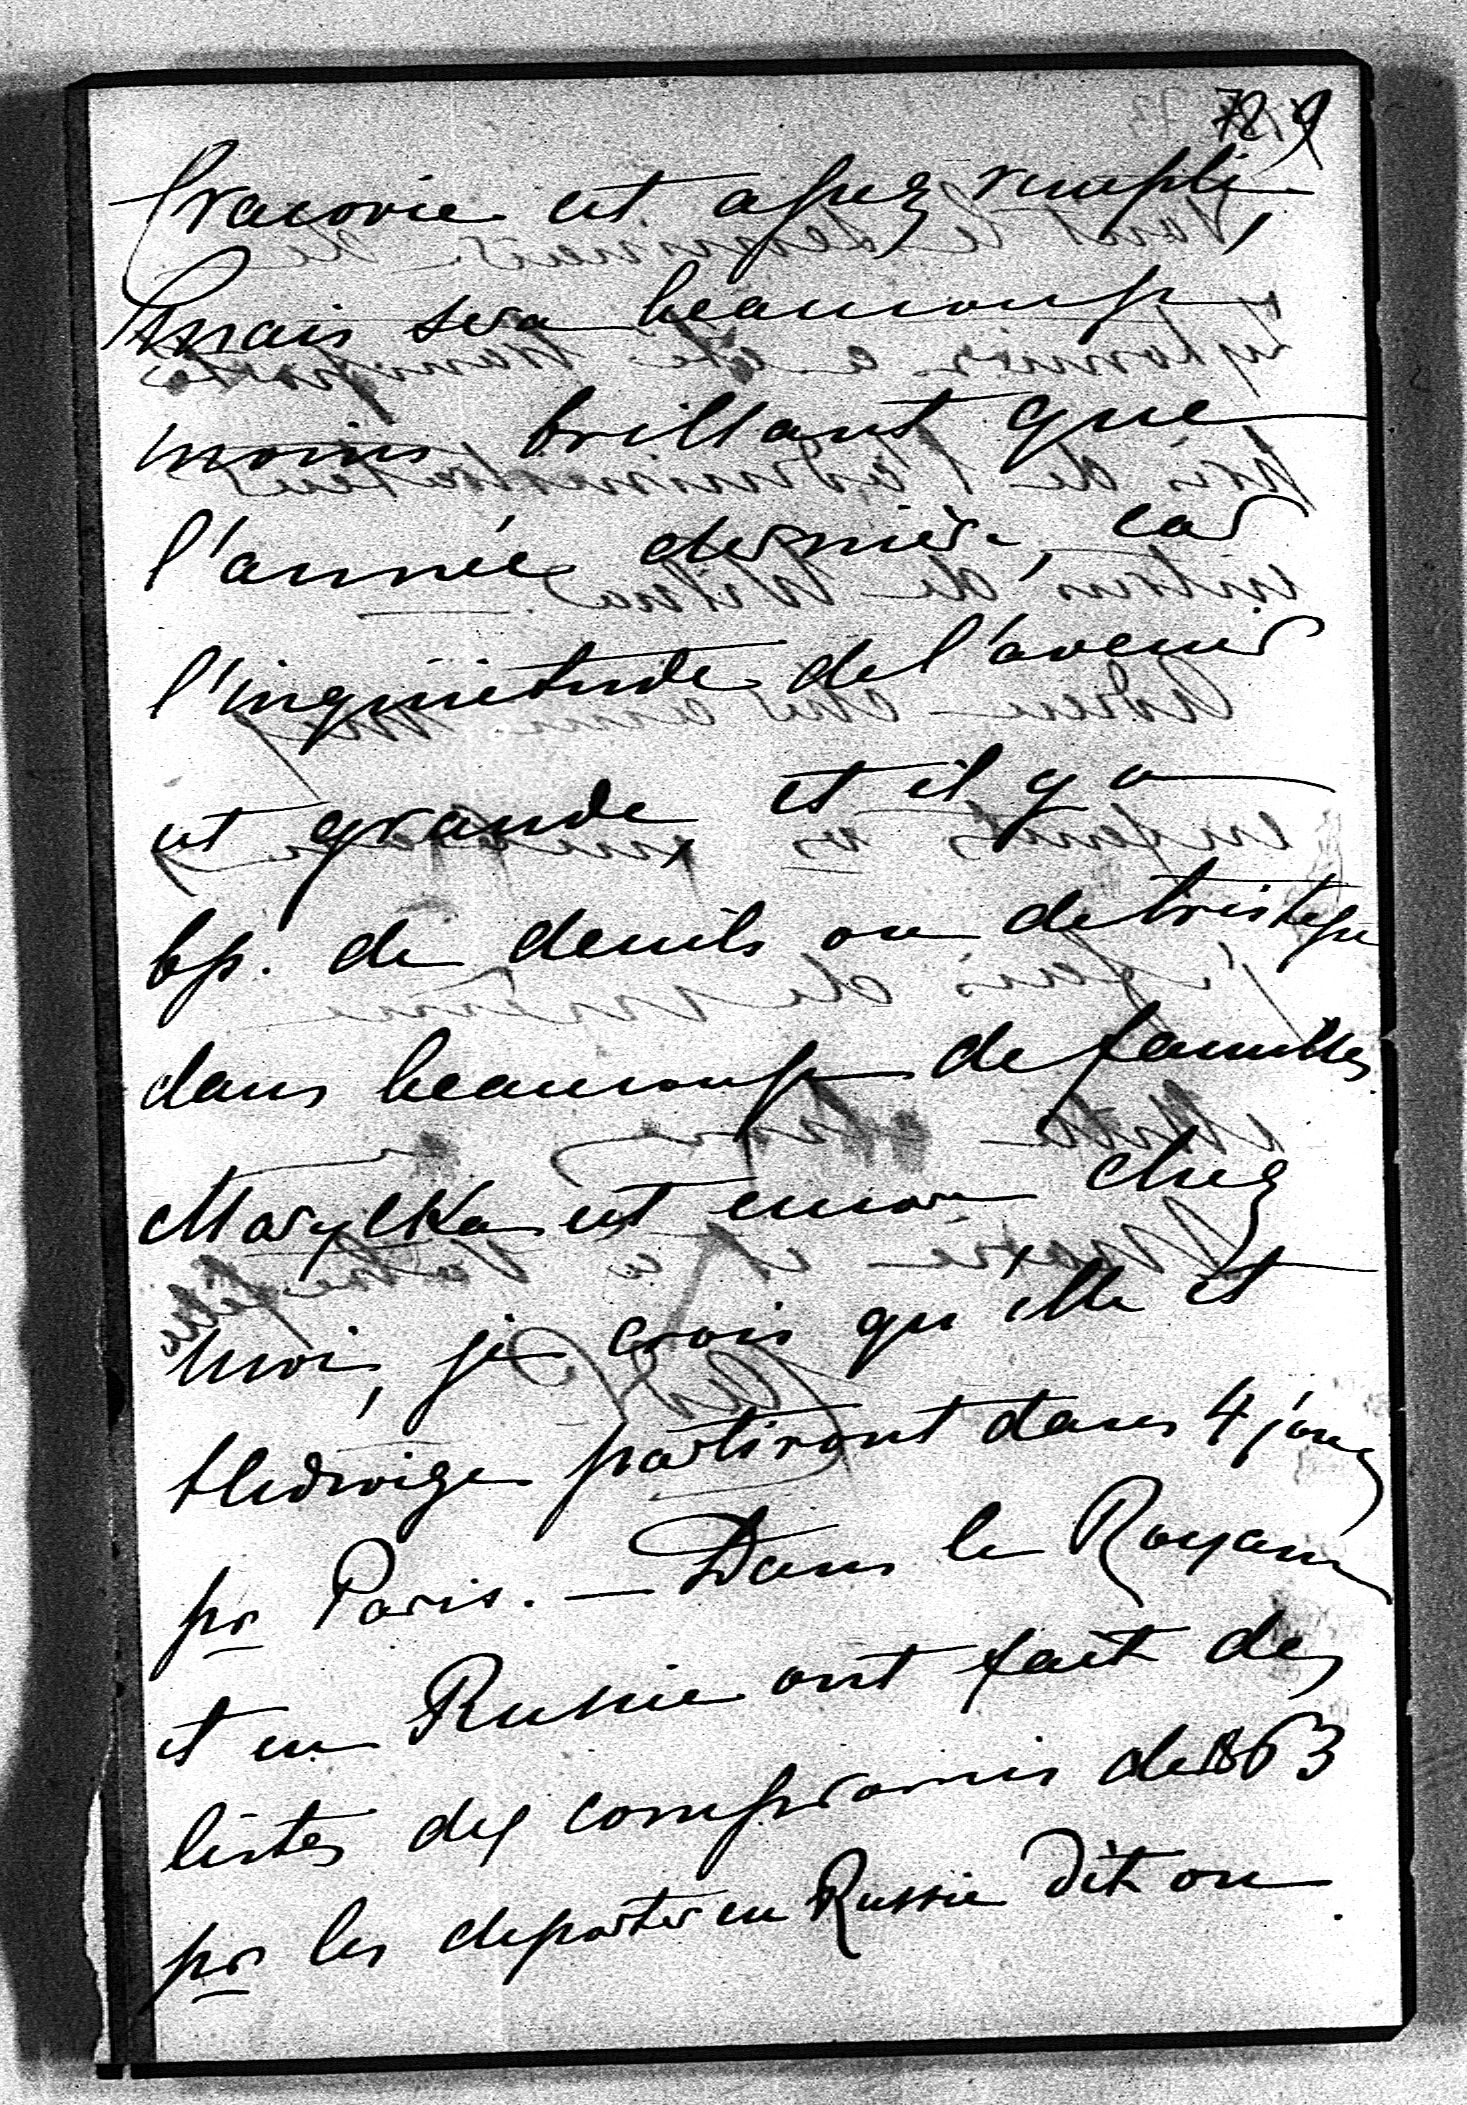 789
Cracovie est assez rempli,
mais sera beaucoup
moins brillant que
l'année dernière, car
l'inquiétude de l'avenir
est grande et il y a
bp. de deuils ou de tristesse
dans beaucoup de familles.
Marylka est encore chez
moi, je crois qu'elle et
Hedwige partiront dans 4 jours
pr Paris. — Dans le Royaume
et en Russie ont fait des
listes des compromis de 1863
pr les deporter en Russie dit on.